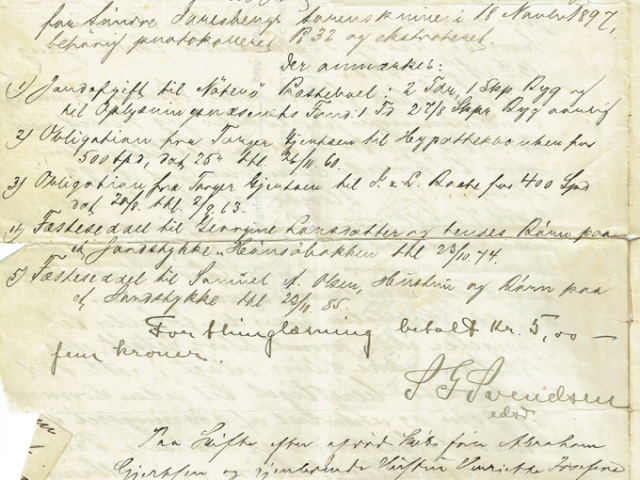 for Søndre Jarlsbergs Sorenskriveri 18 Novbr 1897,
behørig protokolleret P. 32 og ekstraheret.
Der anmærkes:
1) Jordafgift til Nøterø Præstebol: 2 Tdr, 1 Skp. Byg og
til Oplysningsvæsenets Fond: 1 Td 2 7/8 Skpr Byg aarlig
2) Obligation fra Torger Gjertsen til Hypothekbanken for
500 Spd, dat 25 thl 26/11 60.
3) Obligation fra Torger Gjertsen til for 400 Spd
dat thl. 2/9 63.
4) Fæsteseddel til Georgine Larsdatter og hendes Børn paa
et Jordstykke thl 23/10 74.
5) Fæsteseddel til Samuel A. Olsen, Hustru og Børn paa
et Jordstykke thl 23/11. 85.
For thinglæsning betalt Kr. 5,00 —
fem kroner.
S G Svendsen
edsv.
Paa Skifte efter afdød Skibsfører Abraham
Gjertsen og gjenlevende Josefine